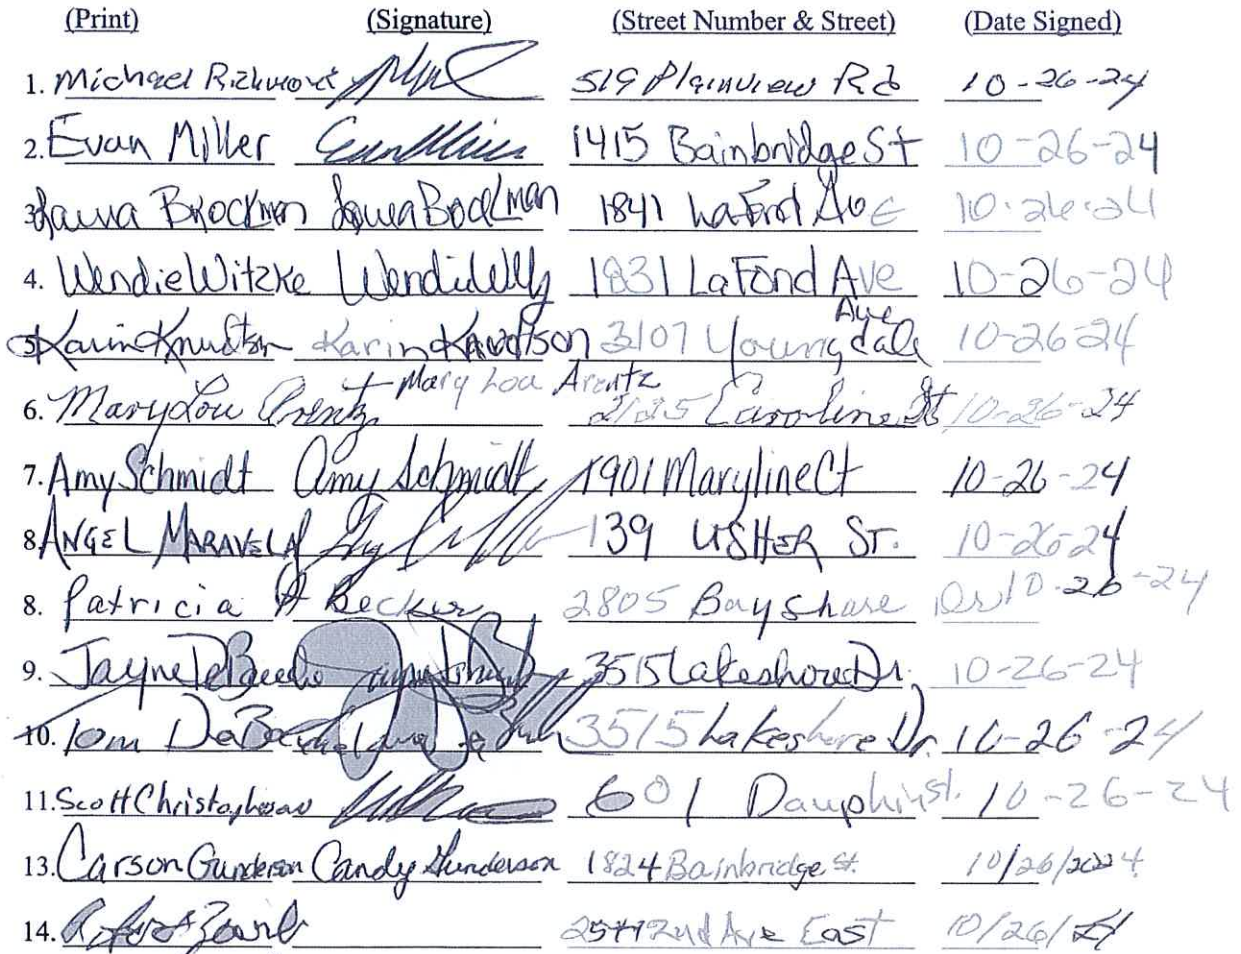 (Print) (Signature) (Street Number & Street) (Date Signed)
1. Michael 519 Plainview Rd 10-26-24
2. Evan Miller 1415 Bainbridge St 10-26-24
3. Laura Brockman 1841 LaFond Ave 10-26-24
4. Wendie Witzke 1831 LaFond Ave 10-26-24
Ave
5. Karin Knudtson Karin Knudtson 3107 Youngdale 10-26-24
Mary Lou Arentz
6. Mary Lou Arentz 2125 Caroline St 10-26-24
7. Amy Schmidt Amy Schmidt 1901 Maryline Ct 10-26-24
8. ANGEL MARAVELA 139 USHER ST. 10-26-24
8. Patricia A Becker 2805 Bayshore Dr 10-26-24
9. Jayne 3515 Lakeshore Dr. 10-26-24
10. Tom 3515 Lakeshore Dr. 10-26-24
11. Scott Christopherson 601 Dauphin St. 10-26-24
13. Carson Gunderson Candy Gunderson 1824 Bainbridge St. 10/26/2024
14. 2nd Ave East 10/26/24